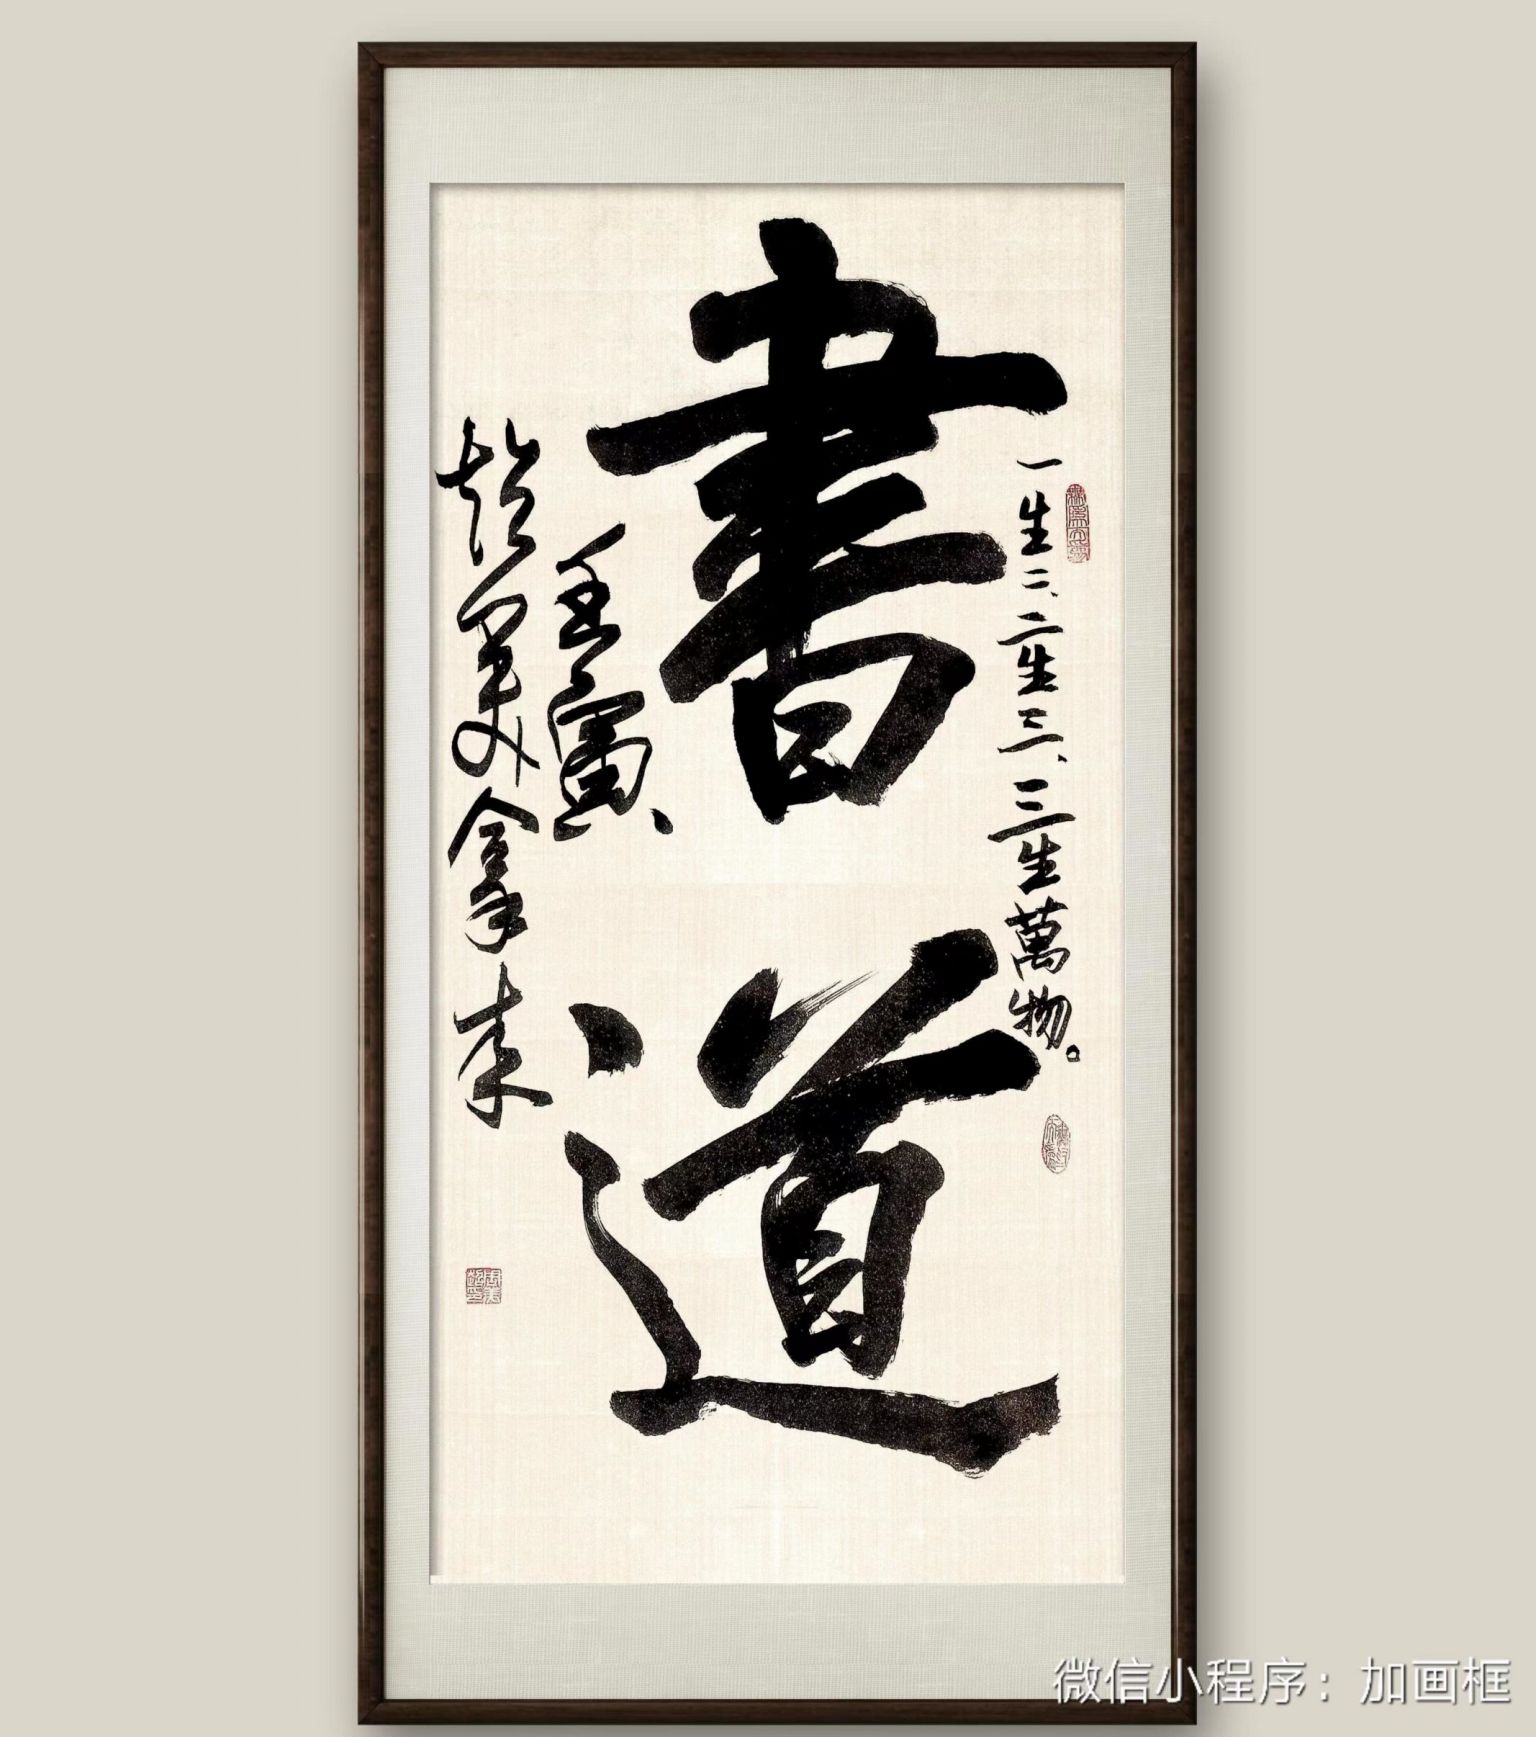 書道
一生二、二生三、三生萬物。
壬寅、
超美拿来
微信小程序：加画框